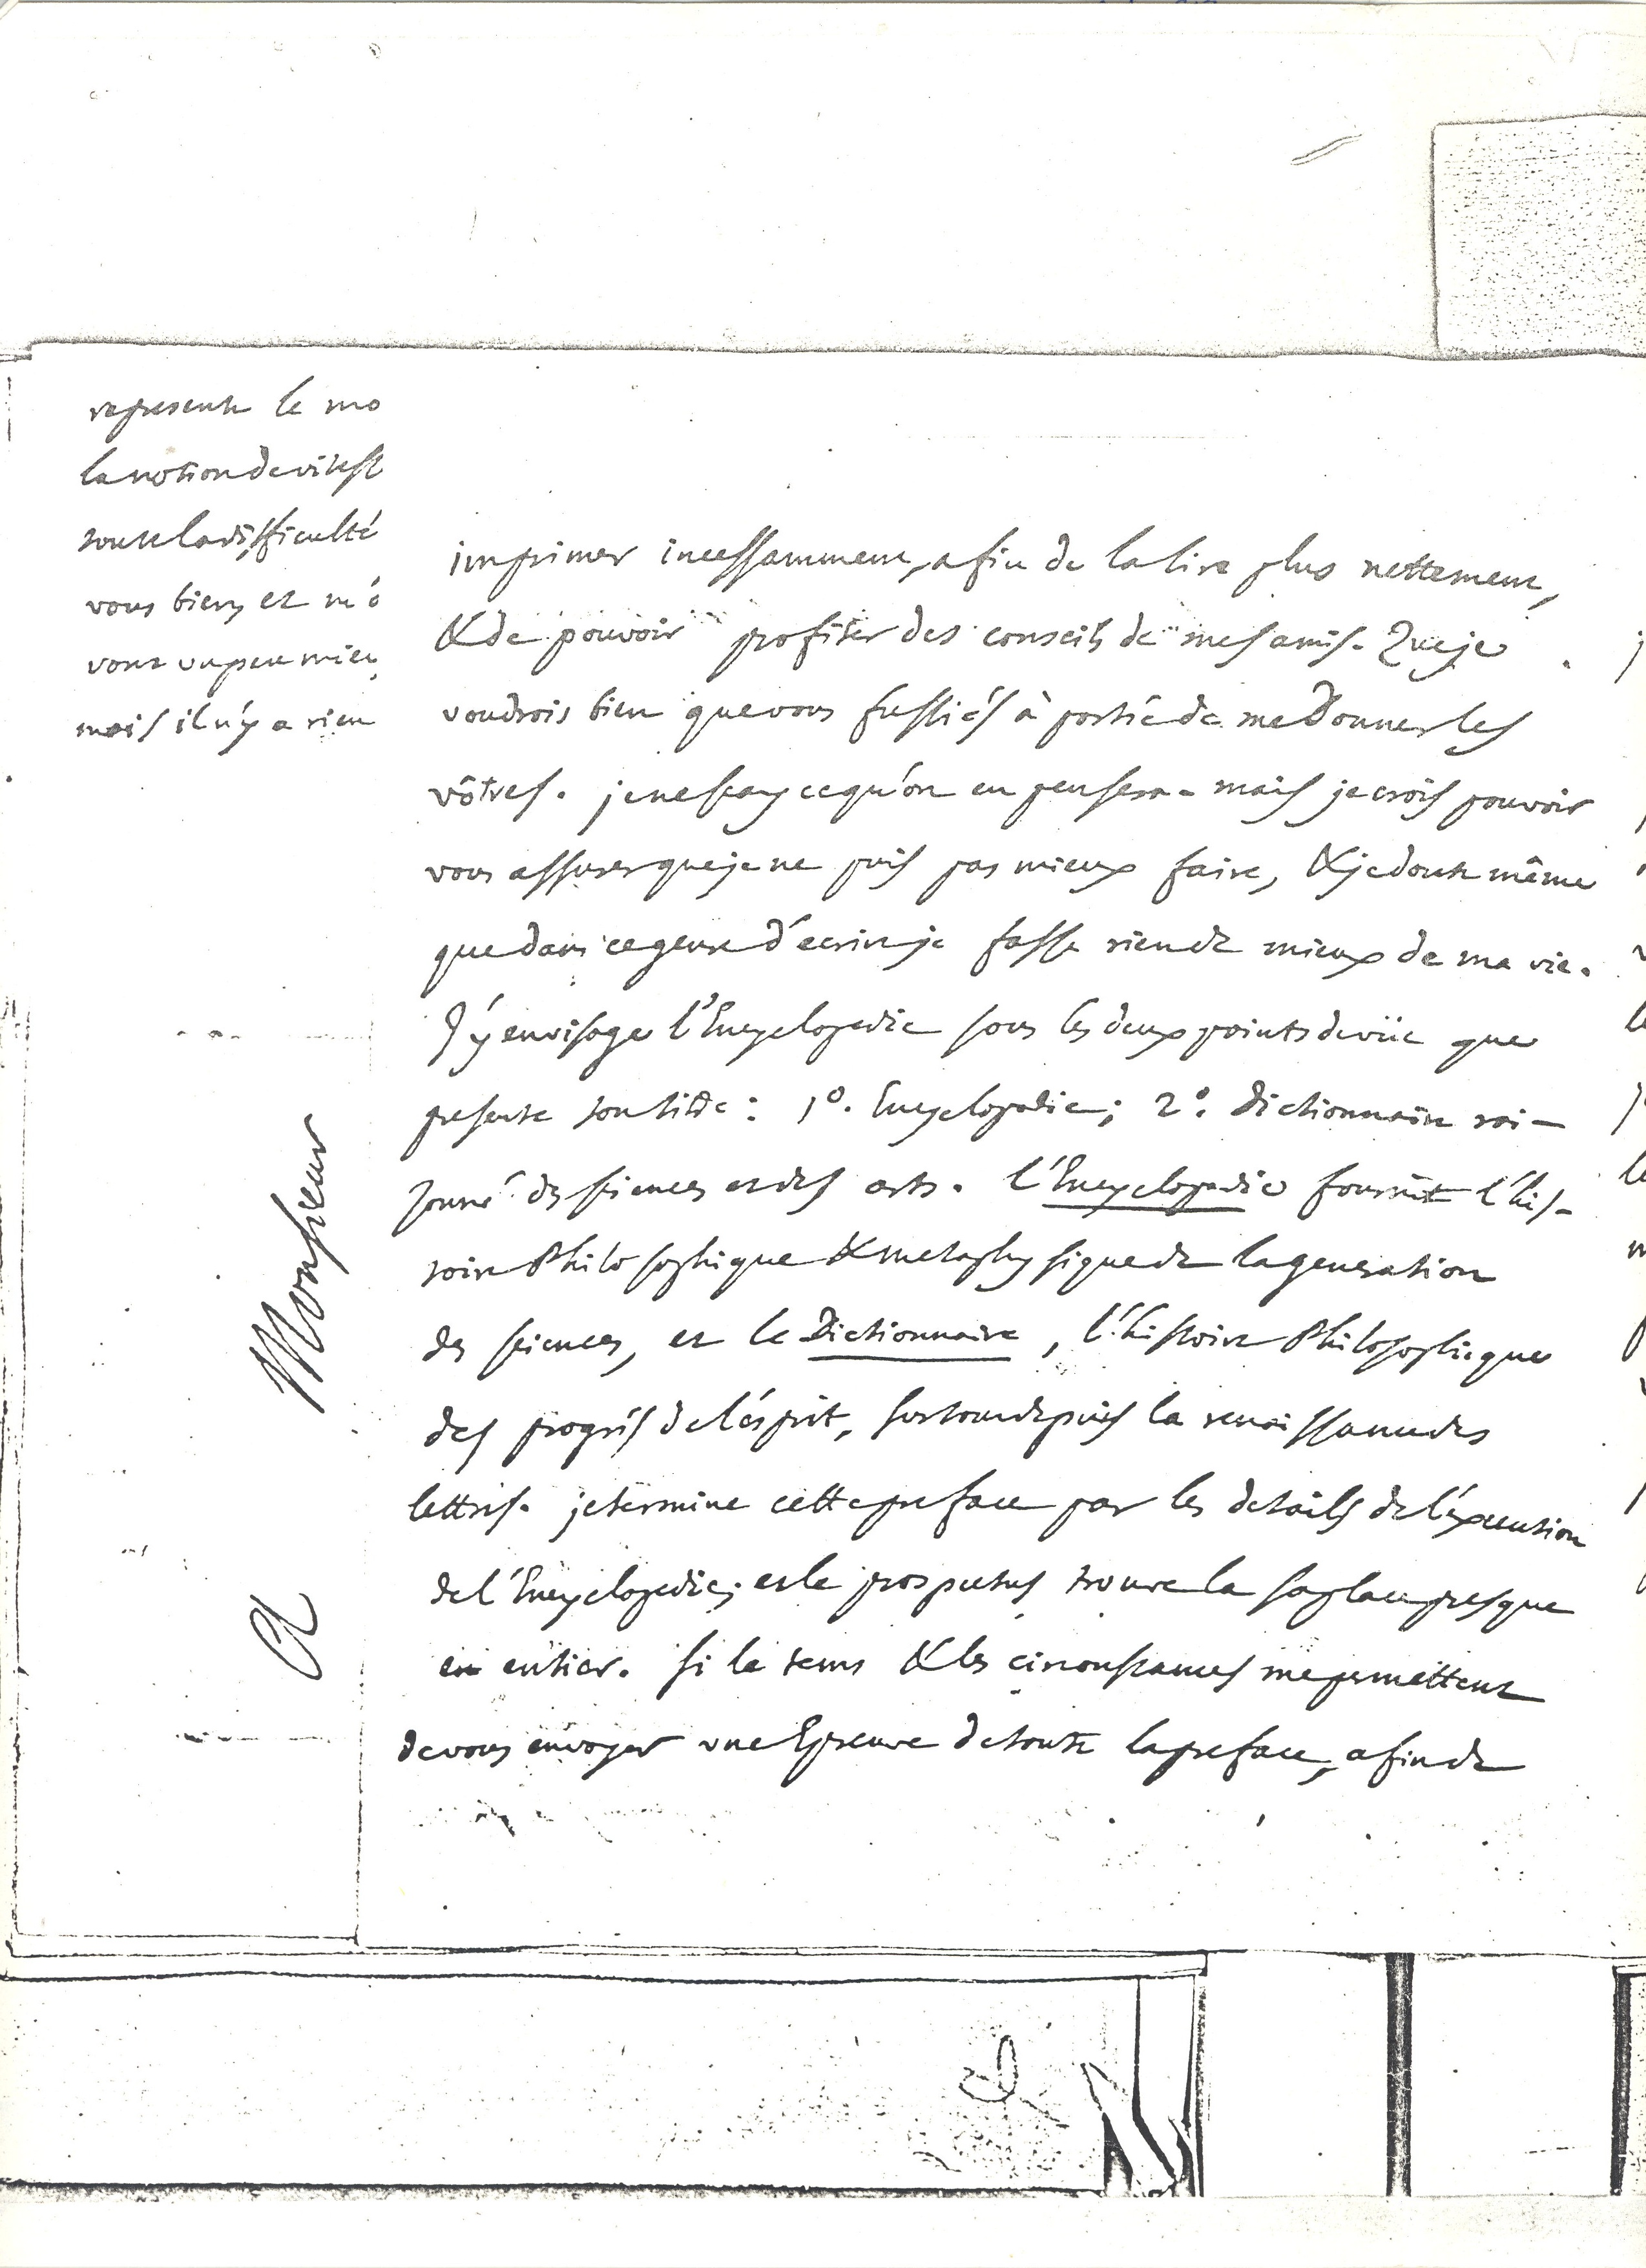 represente le mo
la notion de vitess
toute la difficulté
vous bien, et m'o
vont un peu mieu
mais il n'y a rien
imprimer incessamment, afin de la lire plus nettement,
& de pouvoir profiter des conseils de mes amis. Que je
voudrois bien que vous fussiés à portée de me donner les
vôtres. je ne scay ce qu'on en pensera. mais je crois pouvoir
vous assurer que je ne puis pas mieux faire, & je doute même
que dans ce genre d'ecrire je fasse rien de mieux de ma vie.
J'y envisage l'Encyclopedie sous les deux points de vüe que
presente son titre: 1º. Encyclopedie; 2º. dictionnaire rai-
sonné des sciences et des arts. l'Encyclopedie fournit l'his-
toire Philosophique & metaphysique de la generation
des sciences, et le Dictionnaire, l'histoire Philosophique
des progrés de l'ésprit, surtout depuis la renaissance des
lettres. je termine cette preface par les details de l'éxecution
de l'Encyclopedie; et le prospectus trouve la sa place presque
en entier. si le tems & les circonstances me permettent
de vous envoyer une Epreuve de toute la preface, afin de
A Monsieur